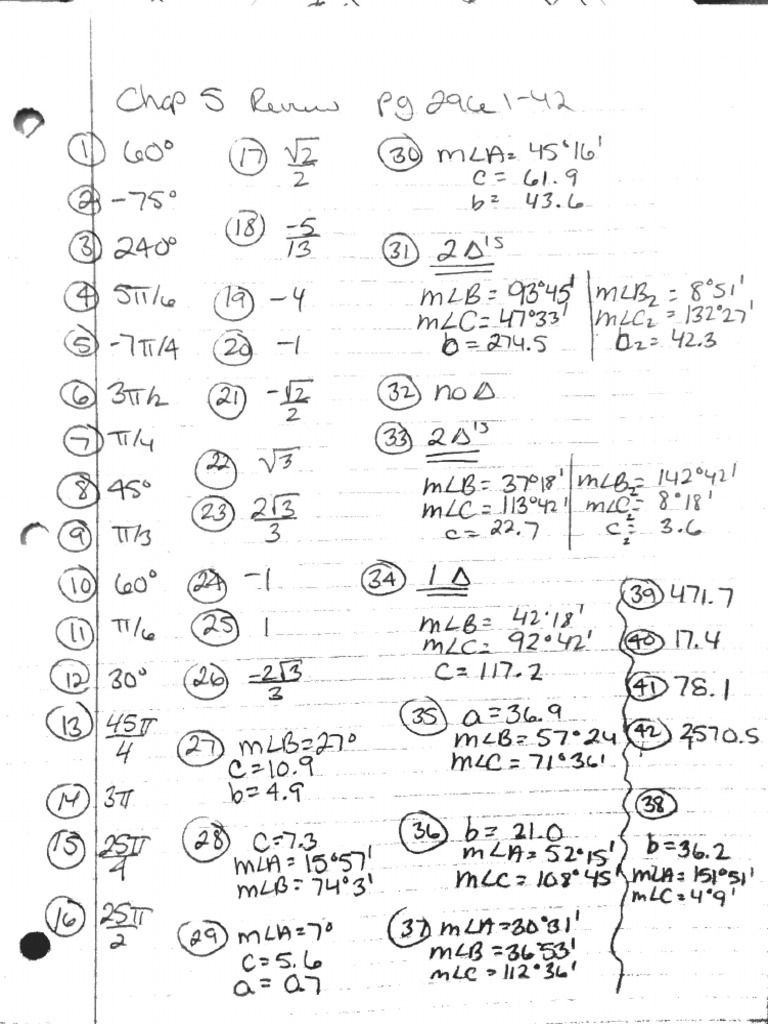 Chap 5 Review pg 296 1-42
1 60°
2 -75°
3 240°
4 5π/6
5 -7π/4
6 3π/2
7 π/4
8 45°
9 π/3
10 60°
11 π/6
12 30°
13 45π/4
14 3π
15 25π/4
16 25π/2
17 √2/2
18 -5/13
19 -4
20 -1
21 -√2/2
22 √3
23 2√3/3
24 -1
25 1
26 -2√3/3
27 m∠B=27°
c=10.9
b=4.9
28 c=7.3
m∠A=15°57'
m∠B=74°3'
29 m∠A=7°
c=5.6
a=0.7
30 m∠A=45°16'
c=61.9
b=43.6
31 2Δ's
m∠B=93°45'
m∠C=47°33'
b=274.5
m∠B2=8°51'
m∠C2=132°27'
b2=42.3
32 no Δ
33 2Δ's
m∠B=37°18'
m∠C=113°42'
c=22.7
m∠B2=142°42'
m∠C2=8°18'
c2=3.6
34 1Δ
m∠B=42°18'
m∠C=92°42'
c=117.2
35 a=36.9
m∠B=57°24
m∠C=71°36'
36 b=21.0
m∠A=52°15'
m∠C=108°45'
37 m∠A=30°31'
m∠B=36°53'
m∠C=112°36'
39 471.7
40 17.4
41 78.1
42
38
b=36.2
m∠A=151°51'
m∠C=4°9'